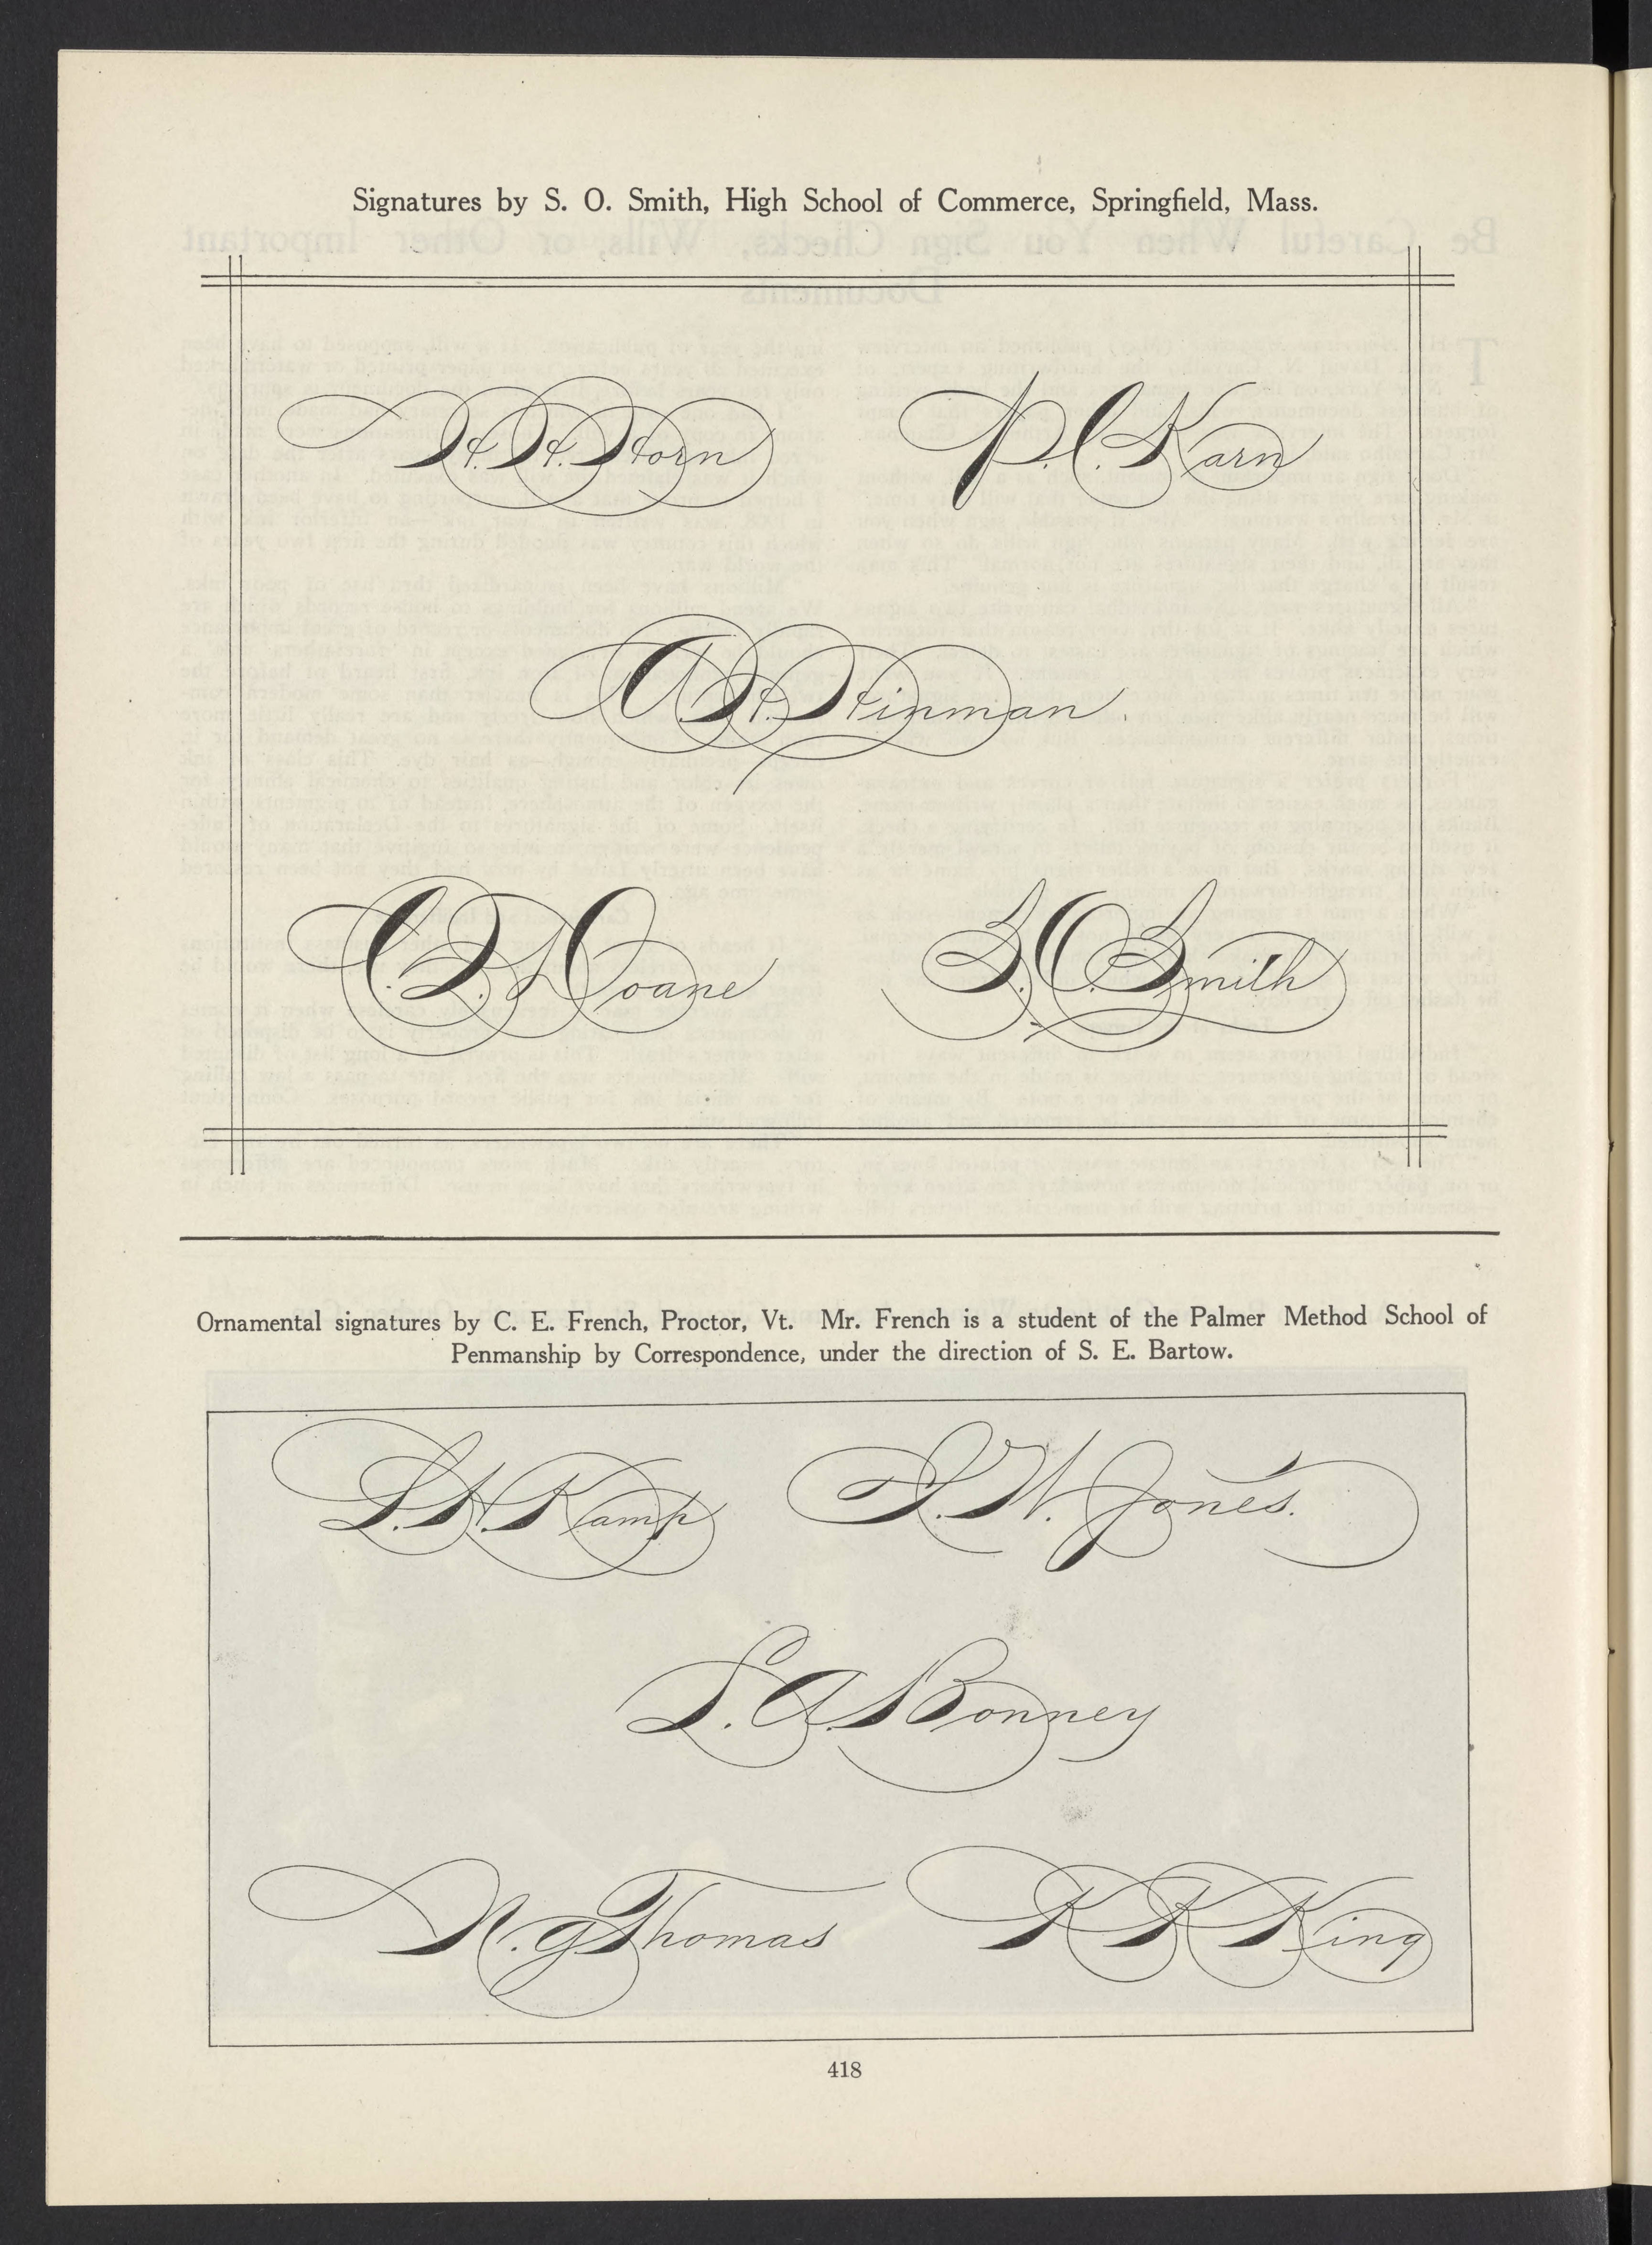 Signatures by S. O. Smith, High School of Commerce, Springfield, Mass.
H. H. Horn
P. C. Karn
A. H. Hinman.
C. L. Doane
S. O. Smith
Ornamental signatures by C. E. French, Proctor, Vt. Mr. French is a student of the Palmer Method School of
Penmanship by Correspondence, under the direction of S. E. Bartow.
L. H. Kamp
S. W. Jones.
L. A. Bonney
N. G. Thomas
K K King
418